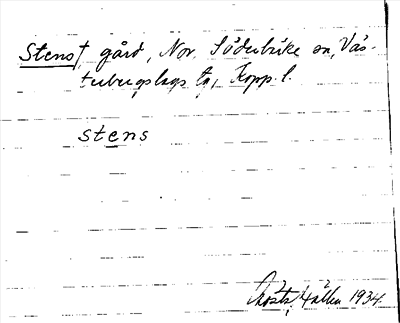 Stens†, gård, Nor. Söderbärke sn, Väs-
terbergslags tg, Kopp. l.
stens
1934.